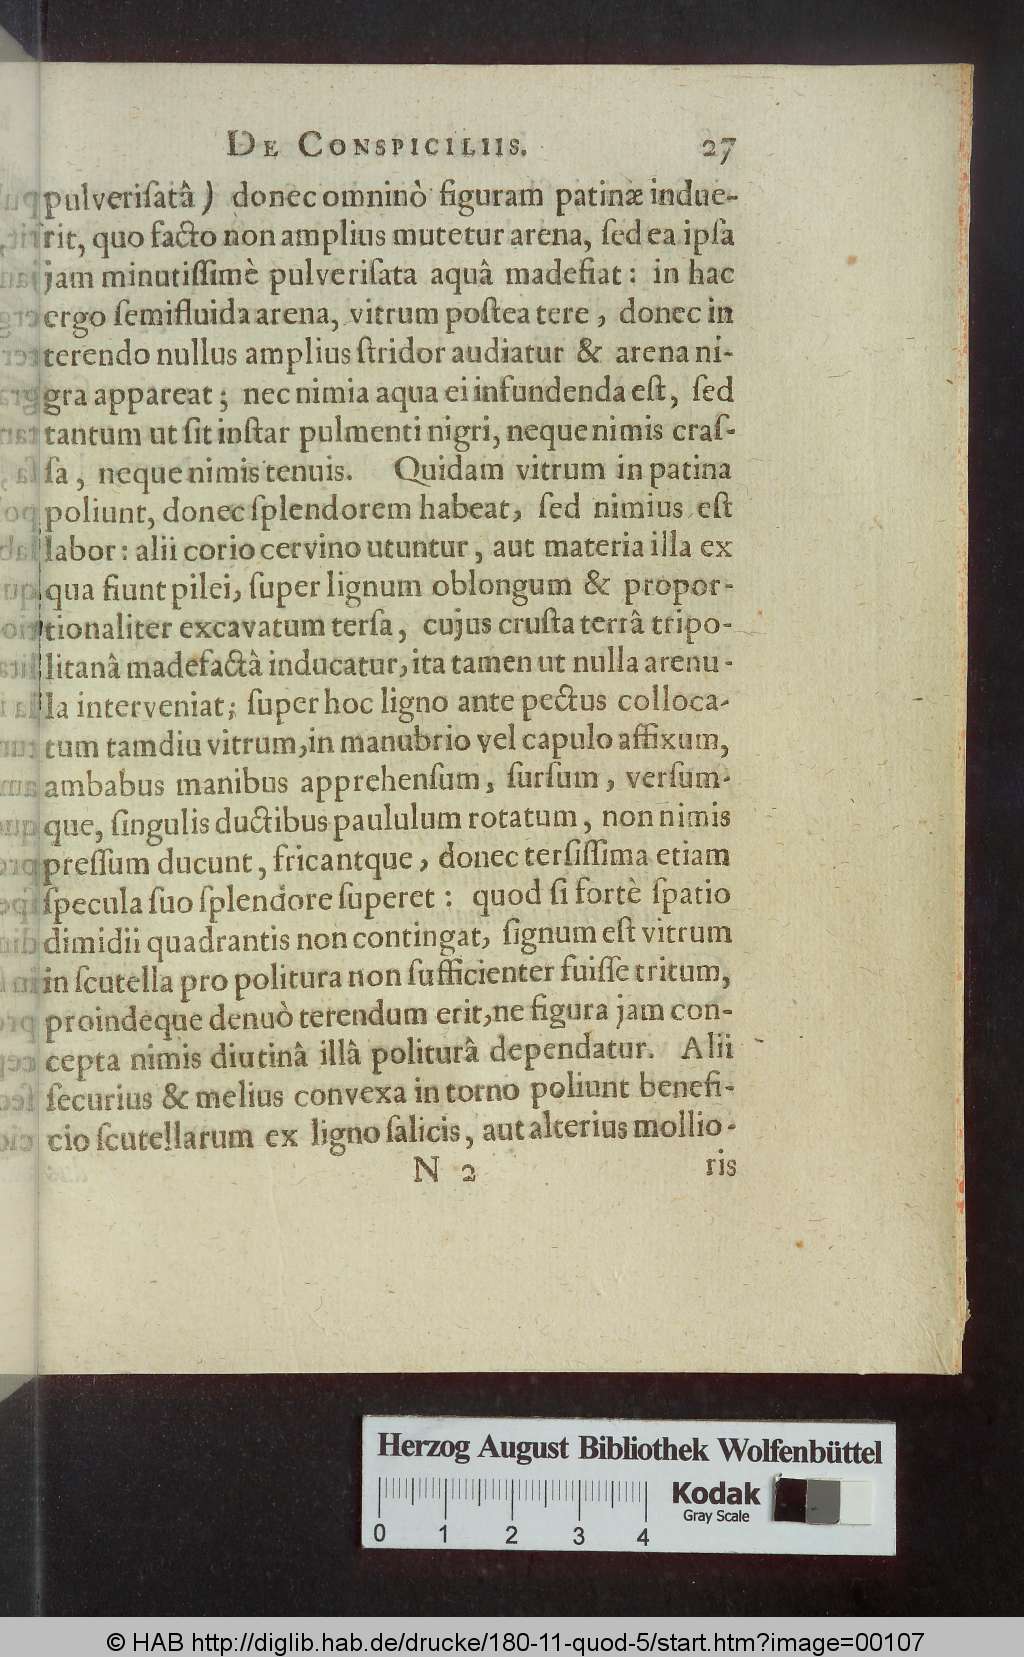 DE CONSPICILIIS. 27
pulveriſatâ) donec omninò figuram patinæ indue-
rit, quo facto non amplius mutetur arena, ſed ea ipſa
jam minutiſſimè pulveriſata aquâ madefiat: in hac
ergo ſemifluida arena, vitrum poſtea tere, donec in
terendo nullus amplius ſtridor audiatur & arena ni-
gra appareat; nec nimia aqua ei infundenda eſt, ſed
tantum ut ſit inſtar pulmenti nigri, neque nimis craſ-
ſa, neque nimis tenuis. Quidam vitrum in patina
poliunt, donec ſplendorem habeat, ſed nimius eſt
labor: alii corio cervino utuntur, aut materia illa ex
qua fiunt pilei, ſuper lignum oblongum & propor-
tionaliter excavatum terſa, cujus cruſta terrâ tripo-
litanâ madefactâ inducatur, ita tamen ut nulla arenu-
la interveniat; ſuper hoc ligno ante pectus colloca-
tum tamdiu vitrum, in manubrio vel capulo affixum,
ambabus manibus apprehenſum, ſurſum, verſum-
que, ſingulis ductibus paululum rotatum, non nimis
preſſum ducunt, fricantque, donec terſiſſima etiam
ſpecula ſuo ſplendore ſuperet: quod ſi fortè ſpatio
dimidii quadrantis non contingat, ſignum eſt vitrum
in ſcutella pro politura non ſufficienter fuiſſe tritum,
proindeque denuò terendum erit, ne figura jam con-
cepta nimis diutinâ illâ politurâ dependatur. Alii
ſecurius & melius convexa in torno poliunt benefi-
cio ſcutellarum ex ligno ſalicis, aut alterius mollio-
N 2 ris
Herzog August Bibliothek Wolfenbüttel
Kodak
Gray Scale
0 1 2 3 4
© HAB http://diglib.hab.de/drucke/180-11-quod-5/start.htm?image=00107